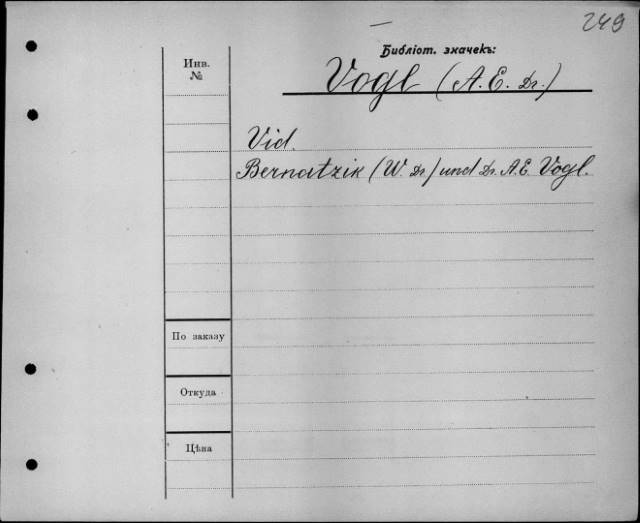 249
Библіот. значекъ:
Vogl (A. E. Dr.)
Инв.
№
Vid.
Bernatzik (W. Dr) und Dr. A. E. Vogl.
По заказу
Откуда
Цѣна